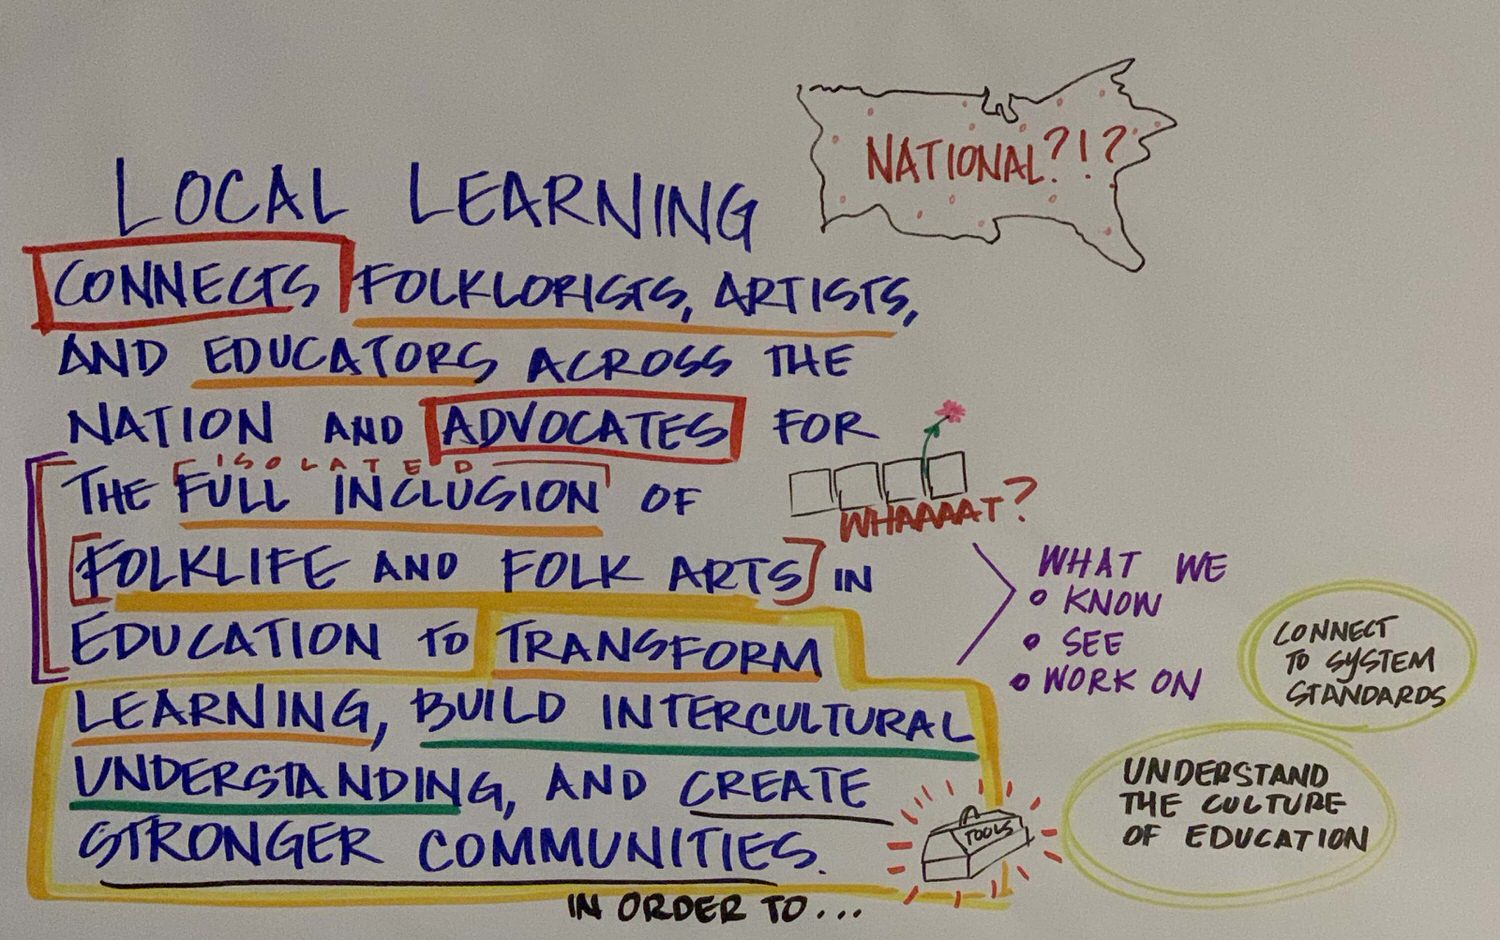 NATIONAL?!?
LOCAL LEARNING
CONNECTS FOLKLORISTS, ARTISTS,
AND EDUCATORS ACROSS THE
NATION AND ADVOCATES FOR
ISOLATED
THE FULL INCLUSION OF
WHAAAAT?
FOLKLIFE AND FOLK ARTS IN
EDUCATION TO TRANSFORM
LEARNING, BUILD INTERCULTURAL
UNDERSTANDING, AND CREATE
STRONGER COMMUNITIES.
IN ORDER TO...
WHAT WE
• KNOW
• SEE
• WORK ON
CONNECT
TO SYSTEM
STANDARDS
UNDERSTAND
THE CULTURE
OF EDUCATION
TOOLS